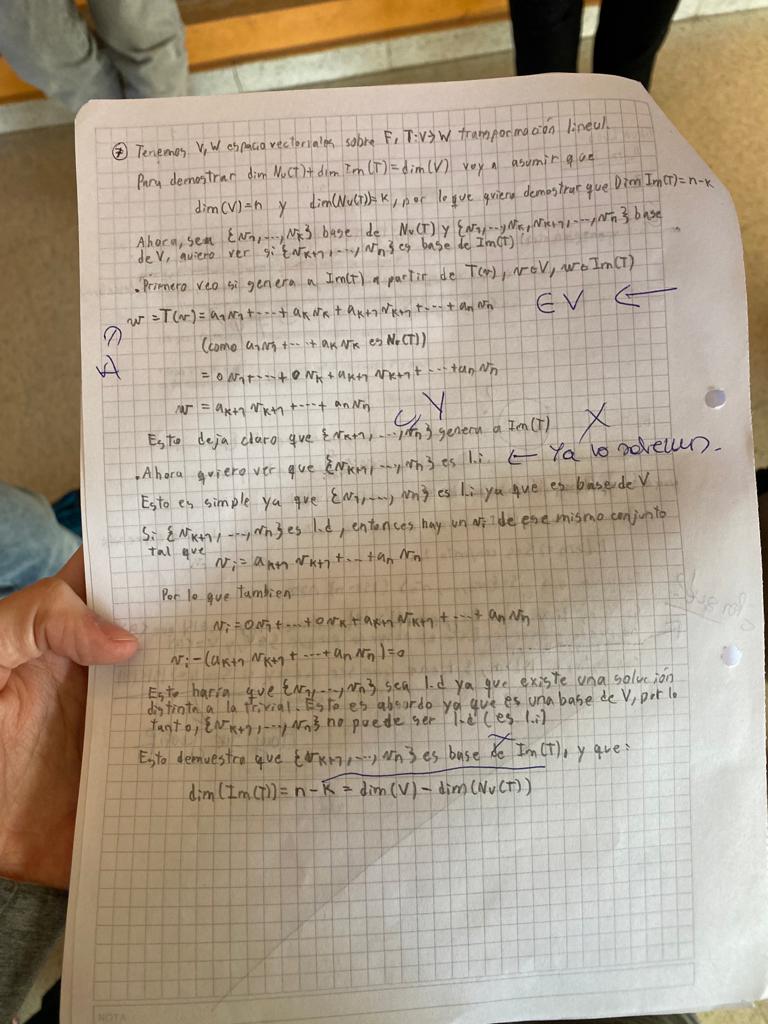 ⑦ Tenemos V, W espacio vectoriales sobre F, T: V→W transformación lineal.
Para demostrar dim Nu(T)+dim Im(T)=dim(V) voy a asumir que
dim(V)=n y dim(Nu(T))=k, por lo que quiero demostrar que Dim Im(T)=n-k
Ahora, sea {v1,...,vk} base de Nu(T) y {v1,...,vk,vk+1,...,vn} base
de V, quiero ver si {vk+1,...,vn} es base de Im(T)
. Primero veo si genera a Im(T) a partir de T(v), v∈V, w∈Im(T)
w = T(v) = a1v1+---+akvk + ak+1vk+1+---+anvn ∈V ←
(como a1v1+---+akvk es Nu(T))
= 0v1+---+0vk+ak+1vk+1+---+anvn
w = ak+1vk+1+---+anvn
Esto deja claro que {vk+1,---,vn} genera a Im(T) X
. Ahora quiero ver que {vk+1,---,vn} es l.i. ← Ya lo sabemos.
Esto es simple ya que {v1,---,vn} es l.i ya que es base de V
Si {vk+1,---,vn} es l.d, entonces hay un vi de ese mismo conjunto
tal que
vi = ak+1vk+1+---+anvn
Por lo que tambien
vi = 0v1+---+0vk+ak+1vk+1+---+anvn
vi-(ak+1vk+1+---+anvn)=0
Esto haría que {v1,---,vn} sea l.d ya que existe una solución
distinta a la trivial. Esto es absurdo ya que es una base de V, por lo
tanto, {vk+1,---,vn} no puede ser l.d (es l.i)
Esto demuestra que {vk+1,---,vn} es base de Im(T), y que:
dim(Im(T))=n-k = dim(V)-dim(Nu(T))
NOTA